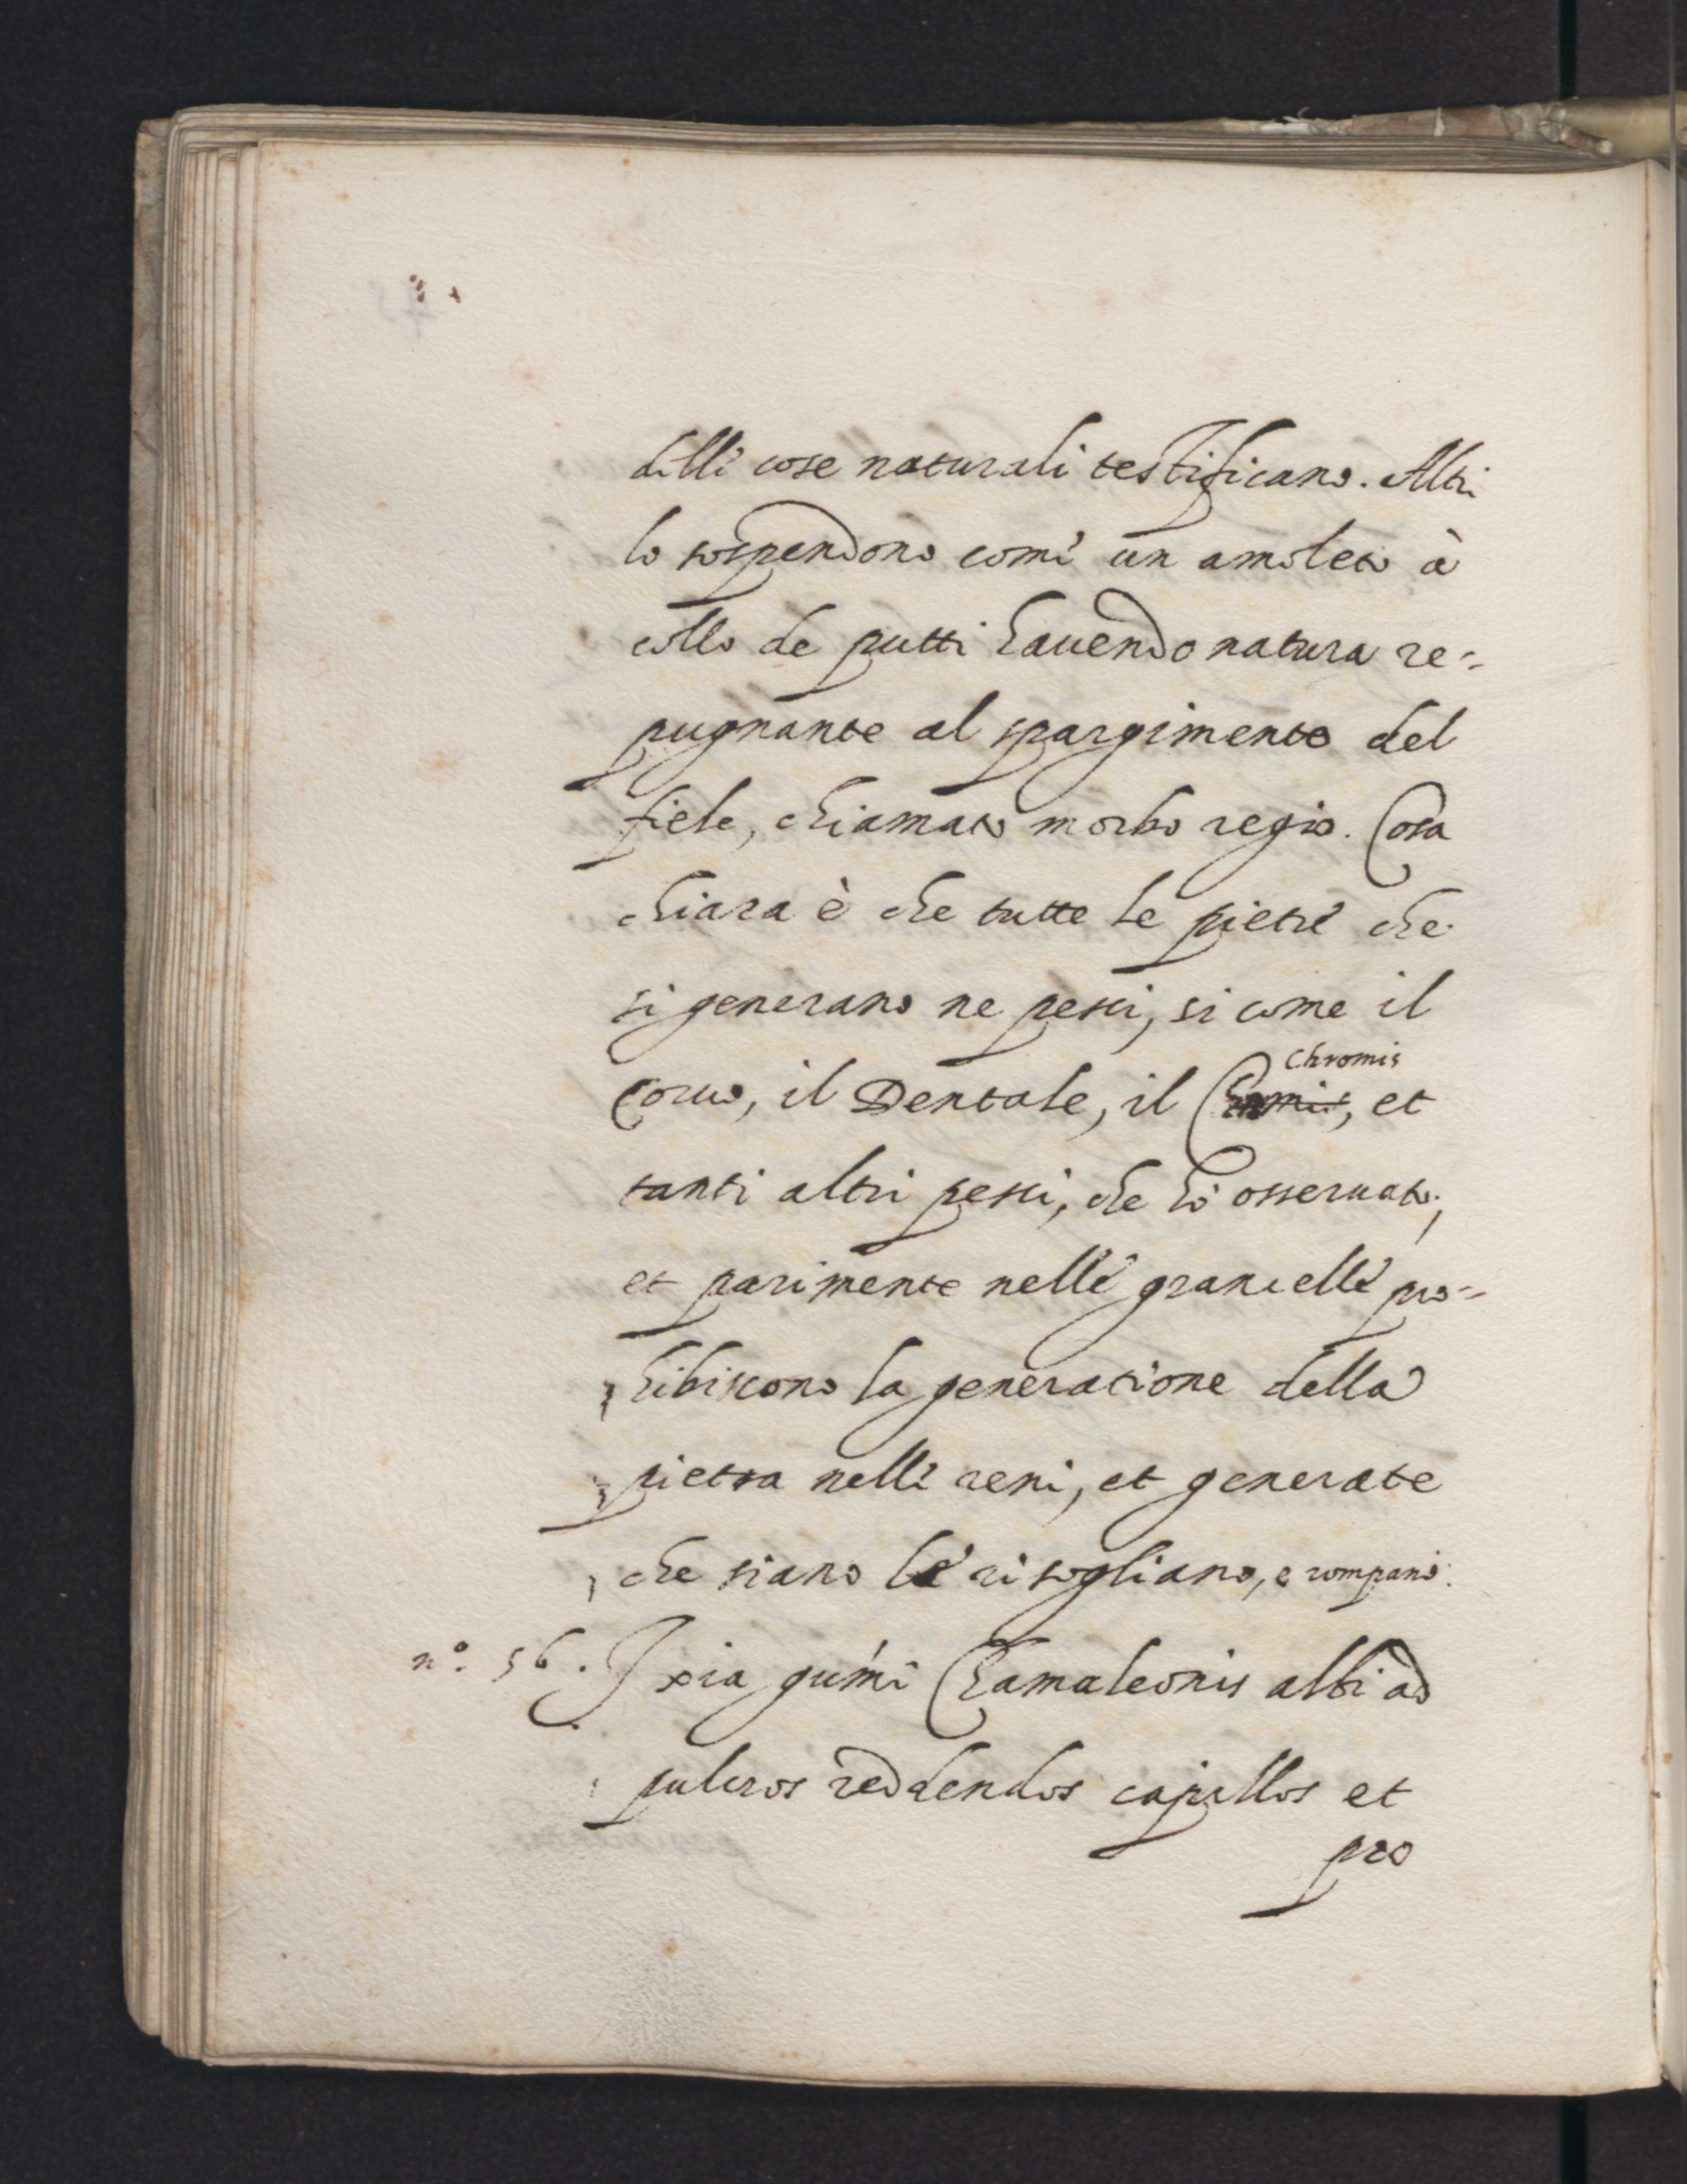 delle cose naturali testificano. Altri
lo sospendono come un amoleto à
collo de putti havendo natura re-
pugnante al spargimento del
fiele, chiamato morbo regio. Cosa
chiara è che tutte le pietre che
si generano ne pesci, si come il
Chromis
Coruo, il Dentale, il Cromis, et
tanti altri pesci, che hò osseruato,
et parimente nelle grancelle pro-
hibiscono la generatione della
pietra nelli reni, et generate
che siano le risogliano, e rompano.
n.º 56. Ixia gumi Chamaleonis albi ad
pulcros reddendos capillos et
pro